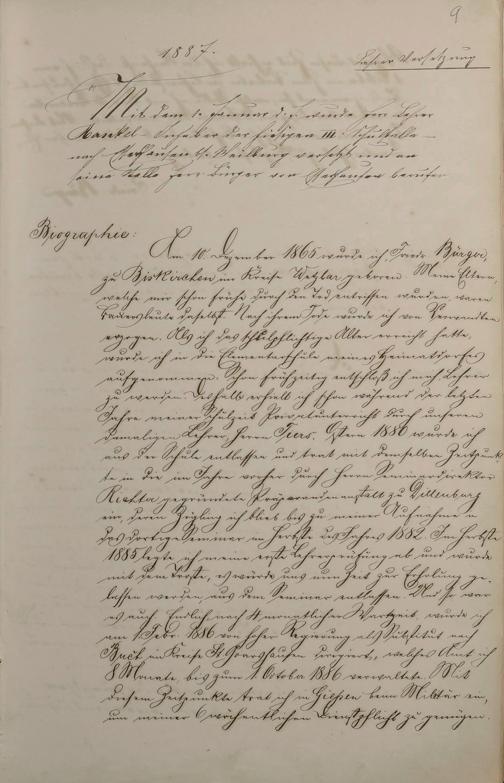 9
1887.
Lehrer Versetzung
Mit dem 1. Januar d. J. wurde Herr Lehrer
Mankel – Inhaber der hiesigen III. Schulstelle –
nach b. Weilburg versetzt und an
seine Stelle Herr Bürger von berufen
Biographie:
Am 10. Dezember 1865 wurde ich, Bürger,
zu Biskirchen im Kreise Wetzlar geboren. Meine Eltern,
welche mir schon frühe durch den Tod entrissen wurden, waren
Bauersleute daselbst. Nach ihrem Tode wurde ich von Verwandten
erzogen. Als ich das schulpflichtige Alter erreicht hatte,
wurde ich in die Elementarschule meines Heimatdorfes
aufgenommen. Schon frühzeitig entschloß ich mich Lehrer
zu werden. Deshalb erhielt ich schon während der letzten
Jahre meiner Schulzeit Privatunterricht durch unseren
damaligen Lehrer, Herrn Ostern 1880 wurde ich
aus der Schule entlassen und trat mit demselben Zeitpunk-
te in die im Jahre vorher durch Herrn Seminardirektor
Richter gegründete Präparandenanstalt zu Dillenburg
ein, deren Zögling ich blieb bis zu meiner Aufnahme in
das dortige Seminar im Herbste des Jahres 1882. Im Herbste
1885 legte ich meine erste Lehrerprüfung ab, und wurde
mit dem Troste, es würde uns nun Zeit zur Erholung ge-
lassen werden, aus dem Seminar entlassen. Und so war
es auch. Endlich nach 4 monatlicher Wartezeit, wurde ich
am 1. Febr. 1886 von hoher Regierung als Substitut nach
Buch im Kreise St. Goarshausen, welches Amt ich
8 Monate, bis zum 1. Octobr 1886 verwaltete. Mit
diesem Zeitpunkte trat ich in Giessen beim Militär ein,
um meiner 6 wöchentlichen Dienstpflicht zu genügen.